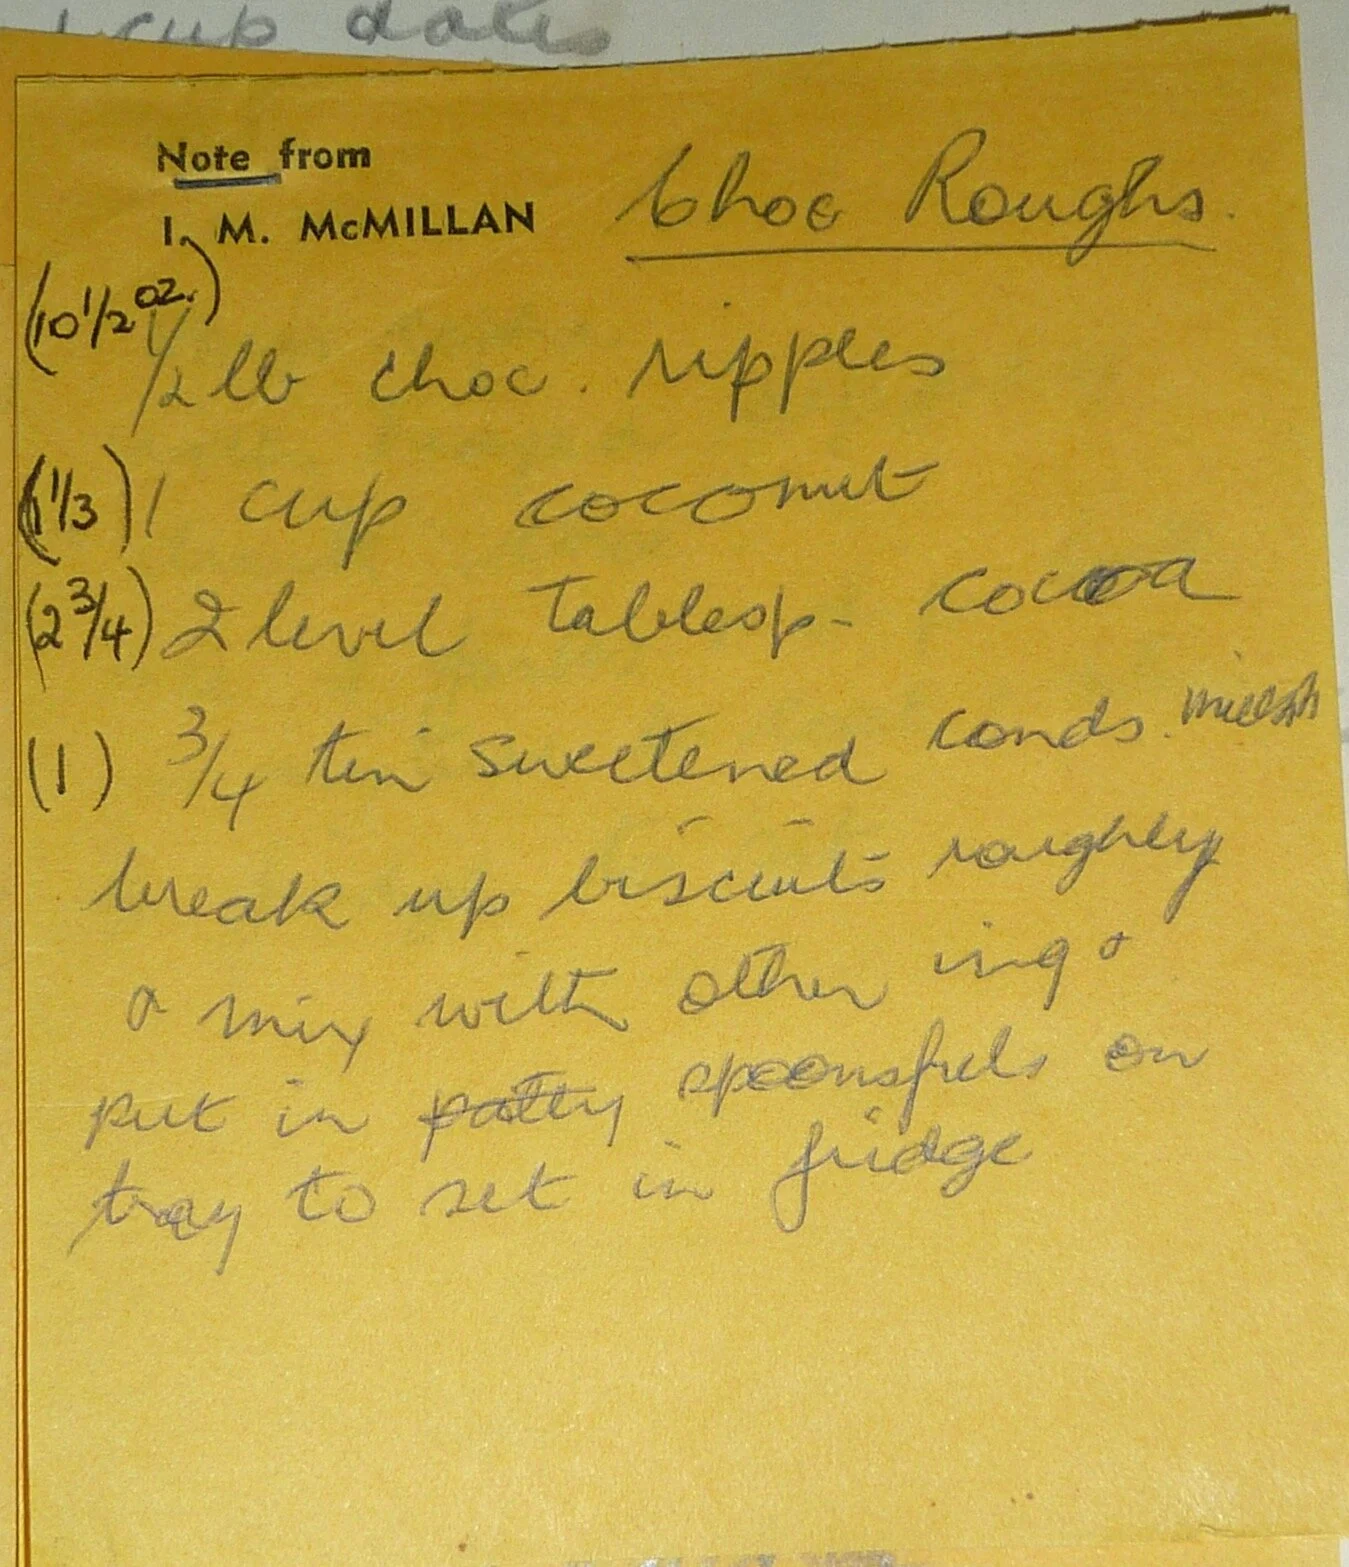 1 cup dates
Note from
I. M. McMILLAN
Choc Roughs.
(10 1/2 oz.)
1/2 lb choc. ripples
(1 1/3) 1 cup coconut
(2 3/4) 2 level Tablesp. cocoa
(1) 3/4 tin sweetened conds. milk
break up biscuits roughly
& mix with other ing &
put in patty spoonsfuls on
tray to set in fridge